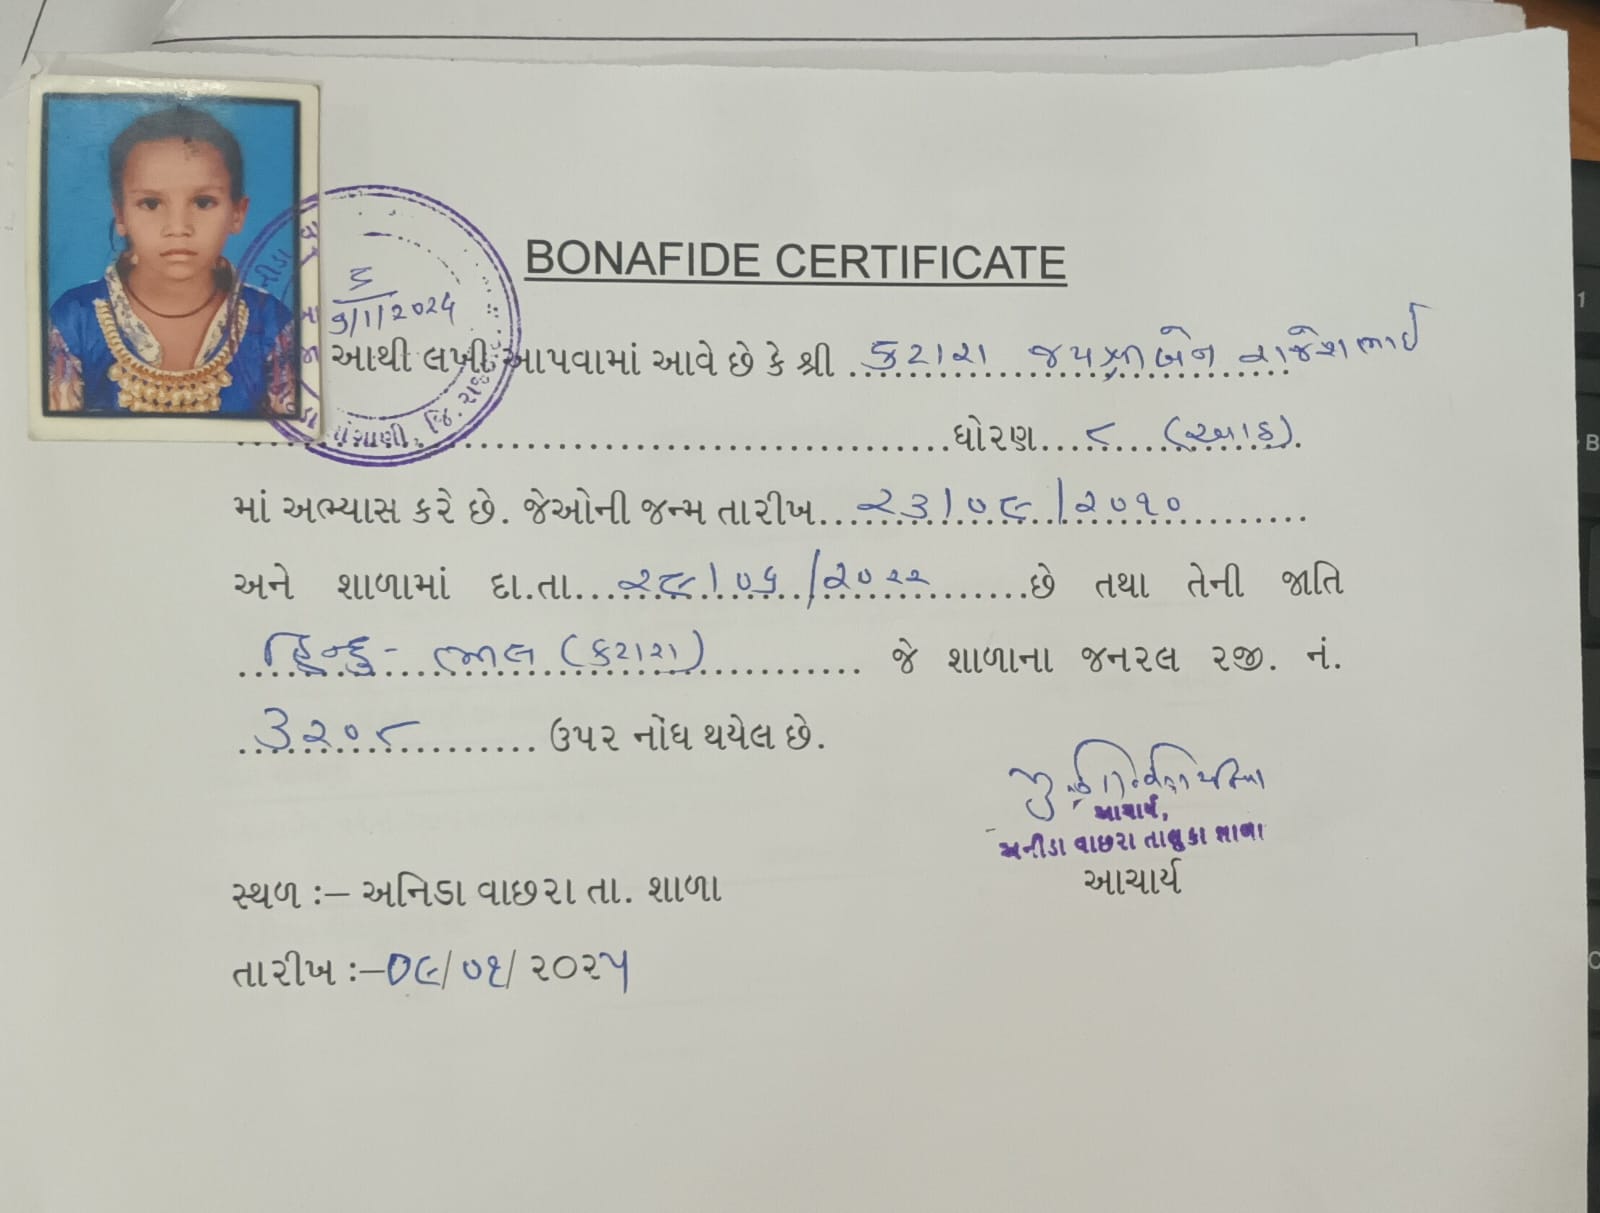 BONAFIDE CERTIFICATE
૬
૭/1/૨૦૨૫
આથી લખી આપવામાં આવે છે કે શ્રી કટારા જયશ્રીબેન રાજેશભાઈ
ધોરણ ૮ (આઠ).
માં અભ્યાસ કરે છે. જેઓની જન્મ તારીખ ૨૩/૦૯/૨૦૧૦
અને શાળામાં દા.તા. ૨૯/૦૬/૨૦૨૨ છે તથા તેની જાતિ
હિન્દુ - ભીલ (કટારા) જે શાળાના જનરલ રજી. નં.
૩૨૦૮ ઉપર નોંધ થયેલ છે.
આચાર્ય,
અનીડા વાછરા તાલુકા શાળા
આચાર્ય
સ્થળ :– અનિડા વાછરા તા. શાળા
તારીખ :– ૦૯/૦૧/૨૦૨૫